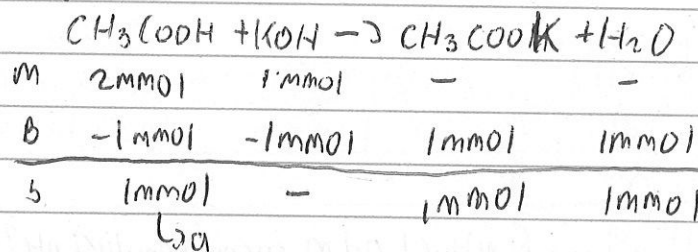 CH3COOH + KOH -> CH3COOK + H2O
M 2mmol 1mmol - -
B -1mmol -1mmol 1mmol 1mmol
S 1mmol - 1mmol 1mmol
↳a